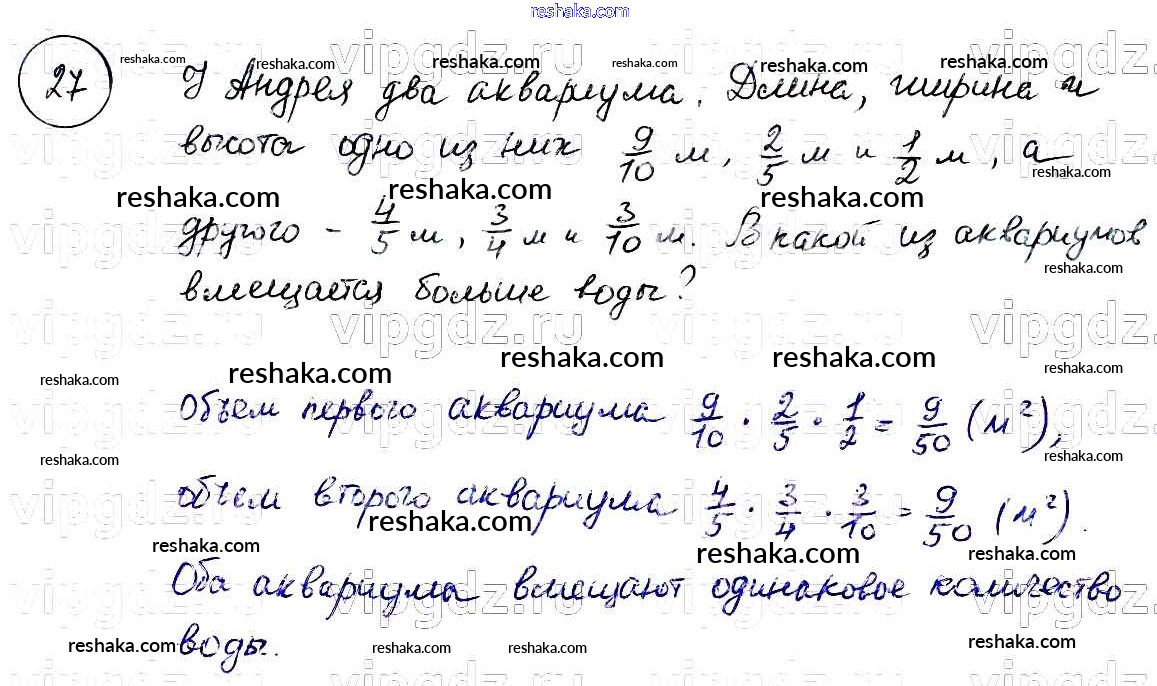 reshaka.com
27
У Андрея два аквариума. Длина, ширина и
высота одно из них 9/10 м, 2/5 м и 1/2 м, а
другого - 4/5 м, 3/4 м и 3/10 м. В какой из аквариумов
вмещается больше воды?
Объем первого аквариума 9/10 · 2/5 · 1/2 = 9/50 (м²),
объем второго аквариума 4/5 · 3/4 · 3/10 = 9/50 (м²).
Оба аквариума вмещают одинаковое количество
воды.